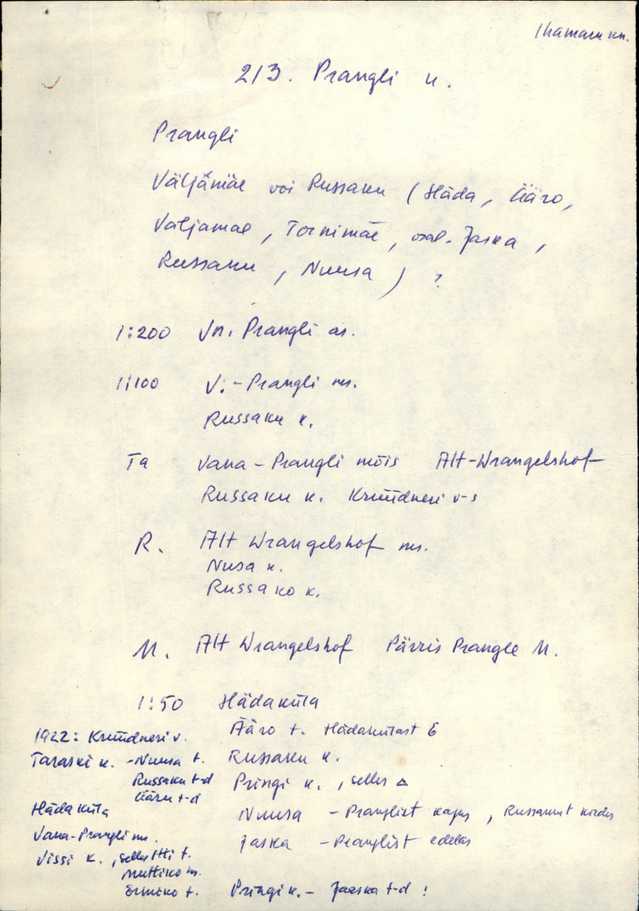 Ihamaru kn.
213. Prangli k.
Prangli
Väljämäe või Russaku (Häda, Ääro,
Väljamäe, Tornimäe, osal. Jaska,
Russaku, Nuusa) ?
1:200 Vn. Prangli as.
1:100 V.-Prangli ms.
Russaku k.
Ta Vana-Prangli mõis Alt-Wrangelshof
Russaku k. Krüüdneri v-s
R. Alt Wrangelshof ms.
Nusa k.
Russako k.
M. Alt Wrangelshof Pärris Prangle M.
1:50 Hädaküla
Ääro t. Hädakülast E
Russaku k.
Pringi k., selles △
Nuusa - Pranglist kagus, Russakust kirdes
Jaska - Pranglist edelas
Pringi k. - Jaaska t-d !
1922: Krüüdneri v.
Taraski k. - Nuusa t.
Russaku t-d
Ääru t-d
Häda küla
Vana-Prangli m.
Vissi k., selles Itti t.